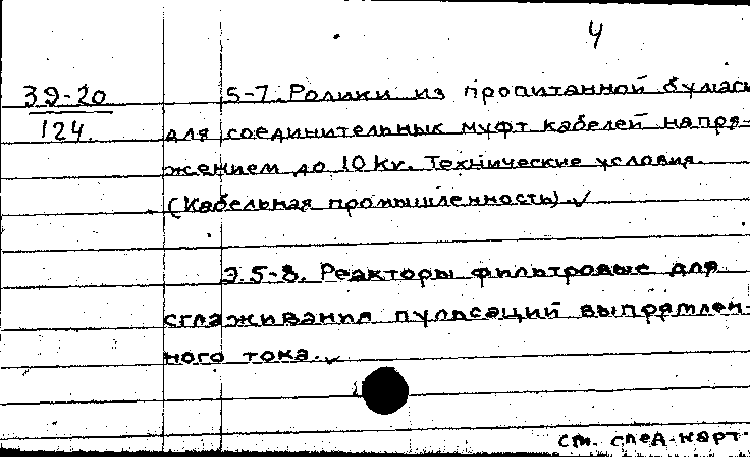 4
Э9-20
124.
5-7. Ролики из пропитанной бумаги
для соединительных муфт кабелей напря-
жением до 10 kv. Технические условия.
(Кабельная промышленность).
Э.5-8. Реакторы фильтровые для
сглаживания пульсаций выпрямлен-
ного тока.
см. след. карт.